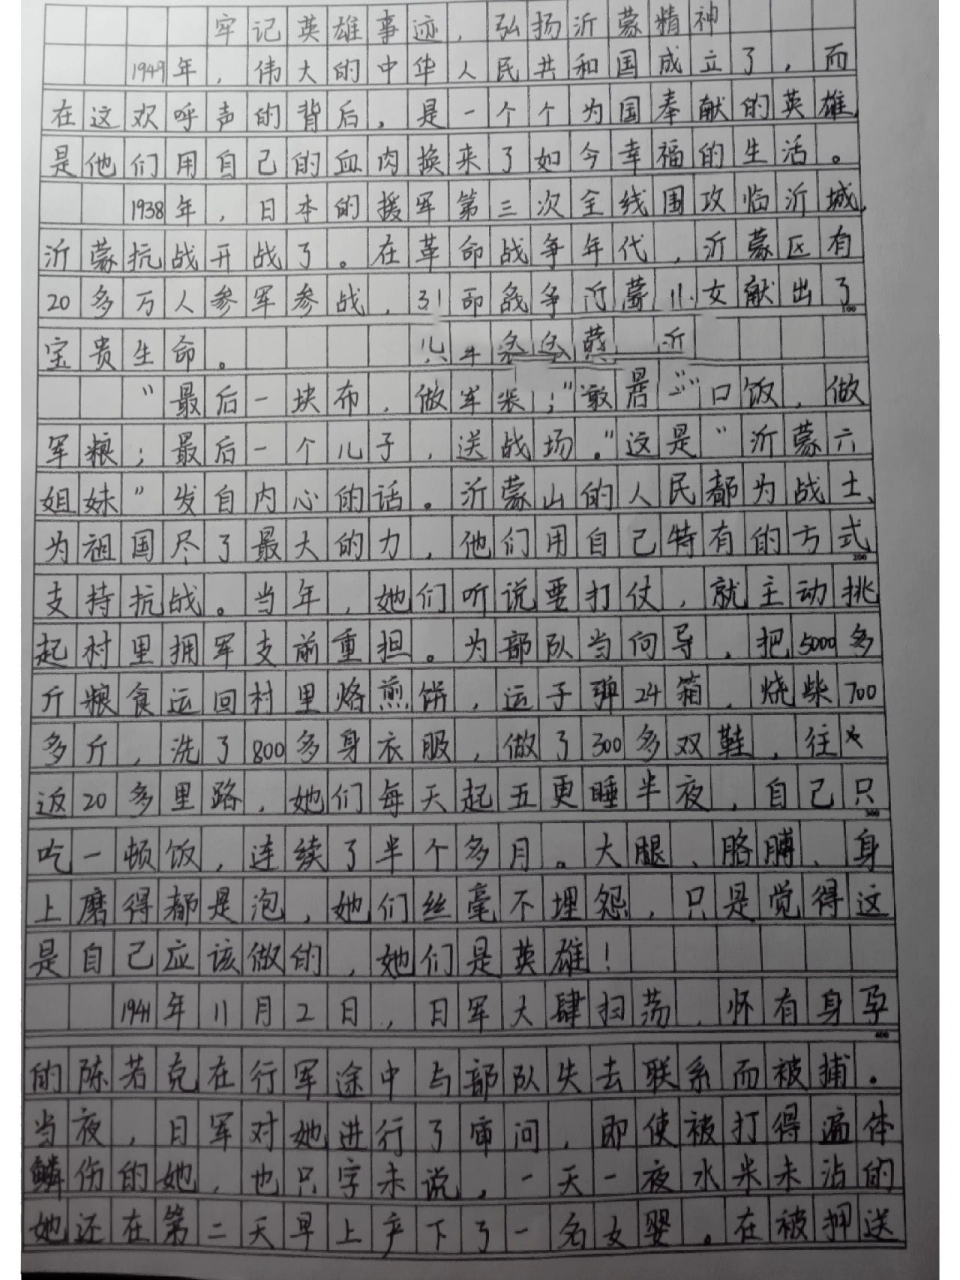 牢记英雄事迹，弘扬沂蒙精神
1949年，伟大的中华人民共和国成立了，而
在这欢呼声的背后，是一个个为国奉献的英雄，
是他们用自己的血肉换来了如今幸福的生活。
1938年，日本的援军第三次全线围攻临沂城，
沂蒙抗战开战了。在革命战争年代，沂蒙区有
20多万人参军参战，31命战争沂蒙儿女献出了
100
宝贵生命。
“最后一块布，做军装；”最后一口饭，做
军粮；最后一个儿子，送战场。“这是“沂蒙六
姐妹”发自内心的话。沂蒙山的人民都为战士、
为祖国尽了最大的力，他们用自己特有的方式
200
支持抗战。当年，她们听说要打仗，就主动挑
起村里拥军支前重担。为部队当向导，把5000多
斤粮食运回村里烙煎饼，运子弹24箱，烧柴700
多斤，洗了800多身衣服，做了300多双鞋，往
返20多里路，她们每天起五更睡半夜，自己只
300
吃一顿饭，连续了半个多月。大腿、胳膊、身
上磨得都是泡，她们丝毫不埋怨，只是觉得这
是自己应该做的，她们是英雄！
1941年11月2日，日军大肆扫荡，怀有身孕
400
的陈若克在行军途中与部队失去联系而被捕。
当夜，日军对她进行了审问，即使被打得遍体
鳞伤的她，也只字未说，一天一夜水米未沾的
她还在第二天早上产下了一名女婴。在被押送